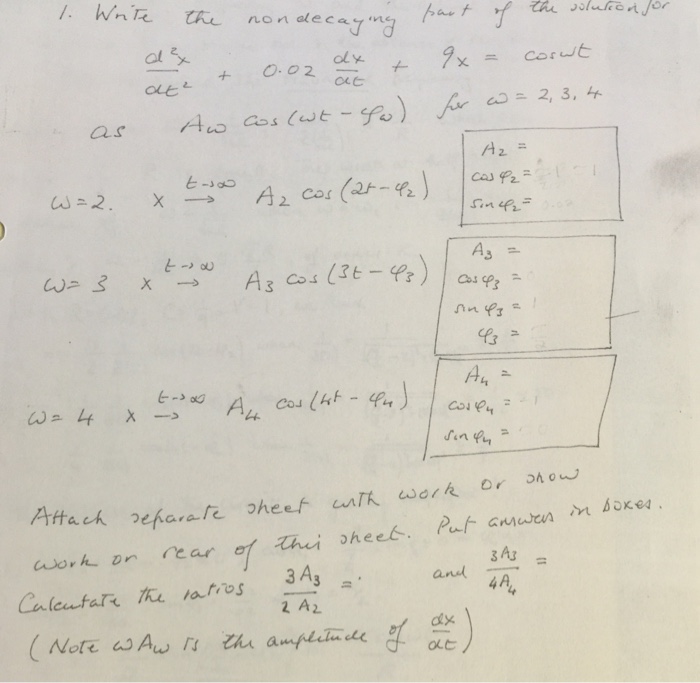 1. Write the nondecaying part of the solution for
d²x/dt² + 0.02 dx/dt + 9x = cosωt
as Aω cos(ωt - φω) for ω = 2, 3, 4
ω = 2. x t→∞ → A₂ cos(2t - φ₂)
A₂ =
cos φ₂ =
sin φ₂ =
ω = 3 x t→∞ → A₃ cos(3t - φ₃)
A₃ =
cos φ₃ =
sin φ₃ =
φ₃ =
ω = 4 x t→∞ → A₄ cos(4t - φ₄)
A₄ =
cos φ₄ =
sin φ₄ =
Attach separate sheet with work or show
work on rear of this sheet. Put answers in boxes.
Calculate the ratios 3A₃/2A₂ = and 3A₃/4A₄ =
(Note ωAω is the amplitude of dx/dt)